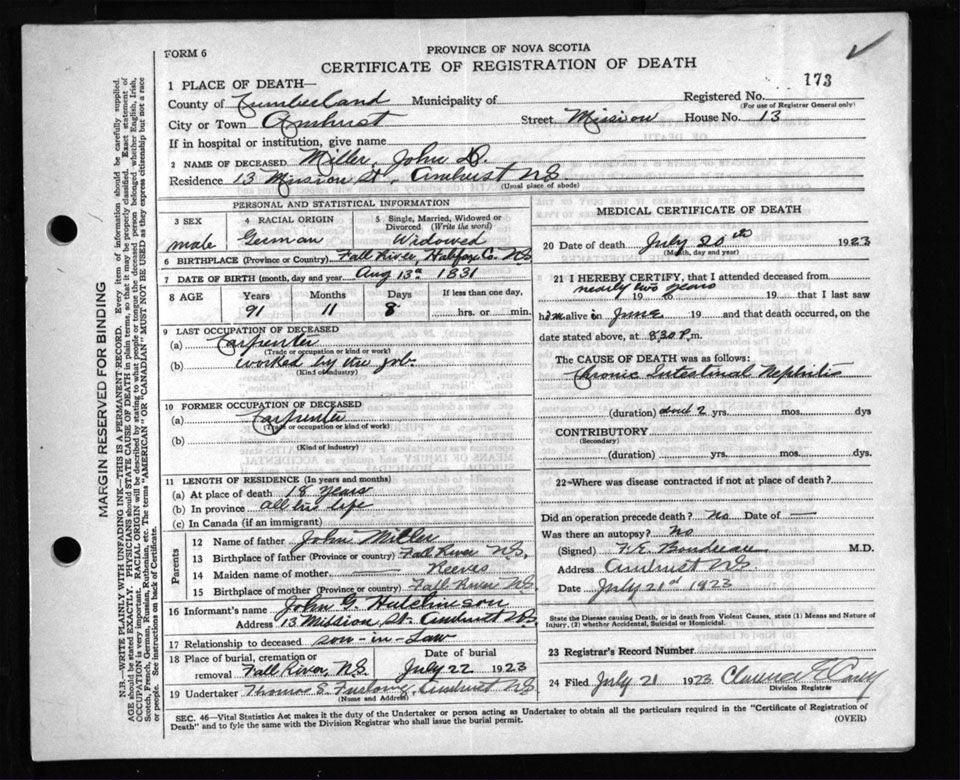 FORM 6
PROVINCE OF NOVA SCOTIA
CERTIFICATE OF REGISTRATION OF DEATH
173
1 PLACE OF DEATH—
County of Cumberland Municipality of
Registered No.
(For use of Registrar General only)
City or Town Amherst Street, Mission House No. 13
If in hospital or institution, give name
2 NAME OF DECEASED Miller, John D.
Residence 13 Mission St, Amherst N.S.
(Usual place of abode)
PERSONAL AND STATISTICAL INFORMATION
3 SEX
male
4 RACIAL ORIGIN
German
5 Single, Married, Widowed or Divorced (Write the word)
Widowed
6 BIRTHPLACE (Province or Country) Fall River, Halifax Co. N.S
7 DATE OF BIRTH (month, day and year) Aug 13th 1831
8 AGE Years Months Days If less than one day,
91 11 8 hrs. or min.
9 LAST OCCUPATION OF DECEASED
(a) Carpenter
(Trade or occupation or kind or work)
(b) worked by the job.
(Kind of industry)
10 FORMER OCCUPATION OF DECEASED
(a) Carpenter
(Trade or occupation or kind of work)
(b)
(Kind of industry)
11 LENGTH OF RESIDENCE (In years and months)
(a) At place of death 18 years
(b) In province all his life
(c) In Canada (if an immigrant)
Parents
12 Name of father John Miller
13 Birthplace of father (Province or country) Fall River N.S,
14 Maiden name of mother — Reeves
15 Birthplace of mother (Province or country) Fall River N.S.
16 Informant's name John G. Hutchinson
Address 13 Mission St. Amherst N.S
17 Relationship to deceased son-in-law
18 Place of burial, cremation or removal Fall River, N.S.
Date of burial
July 22 1923
19 Undertaker Thomas S. Furlong, Amherst N.S
(Name and Address)
MEDICAL CERTIFICATE OF DEATH
20 Date of death July 20th 1923
(Month, day and year)
21 I HEREBY CERTIFY, that I attended deceased from
nearly two years
19 to 19 that I last saw
him alive in June 19 and that death occurred, on
date stated above, at 8.30 P.m.
The CAUSE OF DEATH was as follows:
Chronic Intestinal Nephritis
(duration) about 2 yrs. mos. dys
CONTRIBUTORY
(Secondary)
(duration) yrs. mos. dys.
22—Where was disease contracted if not at place of death?
Did an operation precede death? No Date of —
Was there an autopsy? No
(Signed) F.E. Boudreau M.D.
Address Amherst N.S.
Date July 21st 1923
State the Disease causing Death, or in death from Violent Causes, state (1) Means and Nature of Injury, (2) whether Accidental, Suicidal or Homicidal.
23 Registrar's Record Number
24 Filed July 21 1923 Clarence
Division Registrar
SEC. 46—Vital Statistics Act makes it the duty of the Undertaker or person acting as Undertaker to obtain all the particulars required in the "Certificate of Registration of
Death" and to fyle the same with the Division Registrar who shall issue the burial permit.
(OVER)
MARGIN RESERVED FOR BINDING
N.B.—WRITE PLAINLY WITH UNFADING INK—THIS IS A PERMANENT RECORD. Every item of information should be carefully supplied.
AGE should be stated EXACTLY. PHYSICIANS should STATE CAUSE OF DEATH in plain terms, so that it may be properly classified. Exact statement of
OCCUPATION is very important. RACIAL ORIGIN will be described by stating to what people or tongue the deceased person belonged whether English, Irish,
Scotch, French, German, Russian, Ruthenian, etc. The terms "AMERICAN" OR "CANADIAN" MUST NOT BE USED as they express citizenship but not a race
or people. See instructions on back of Certificate.